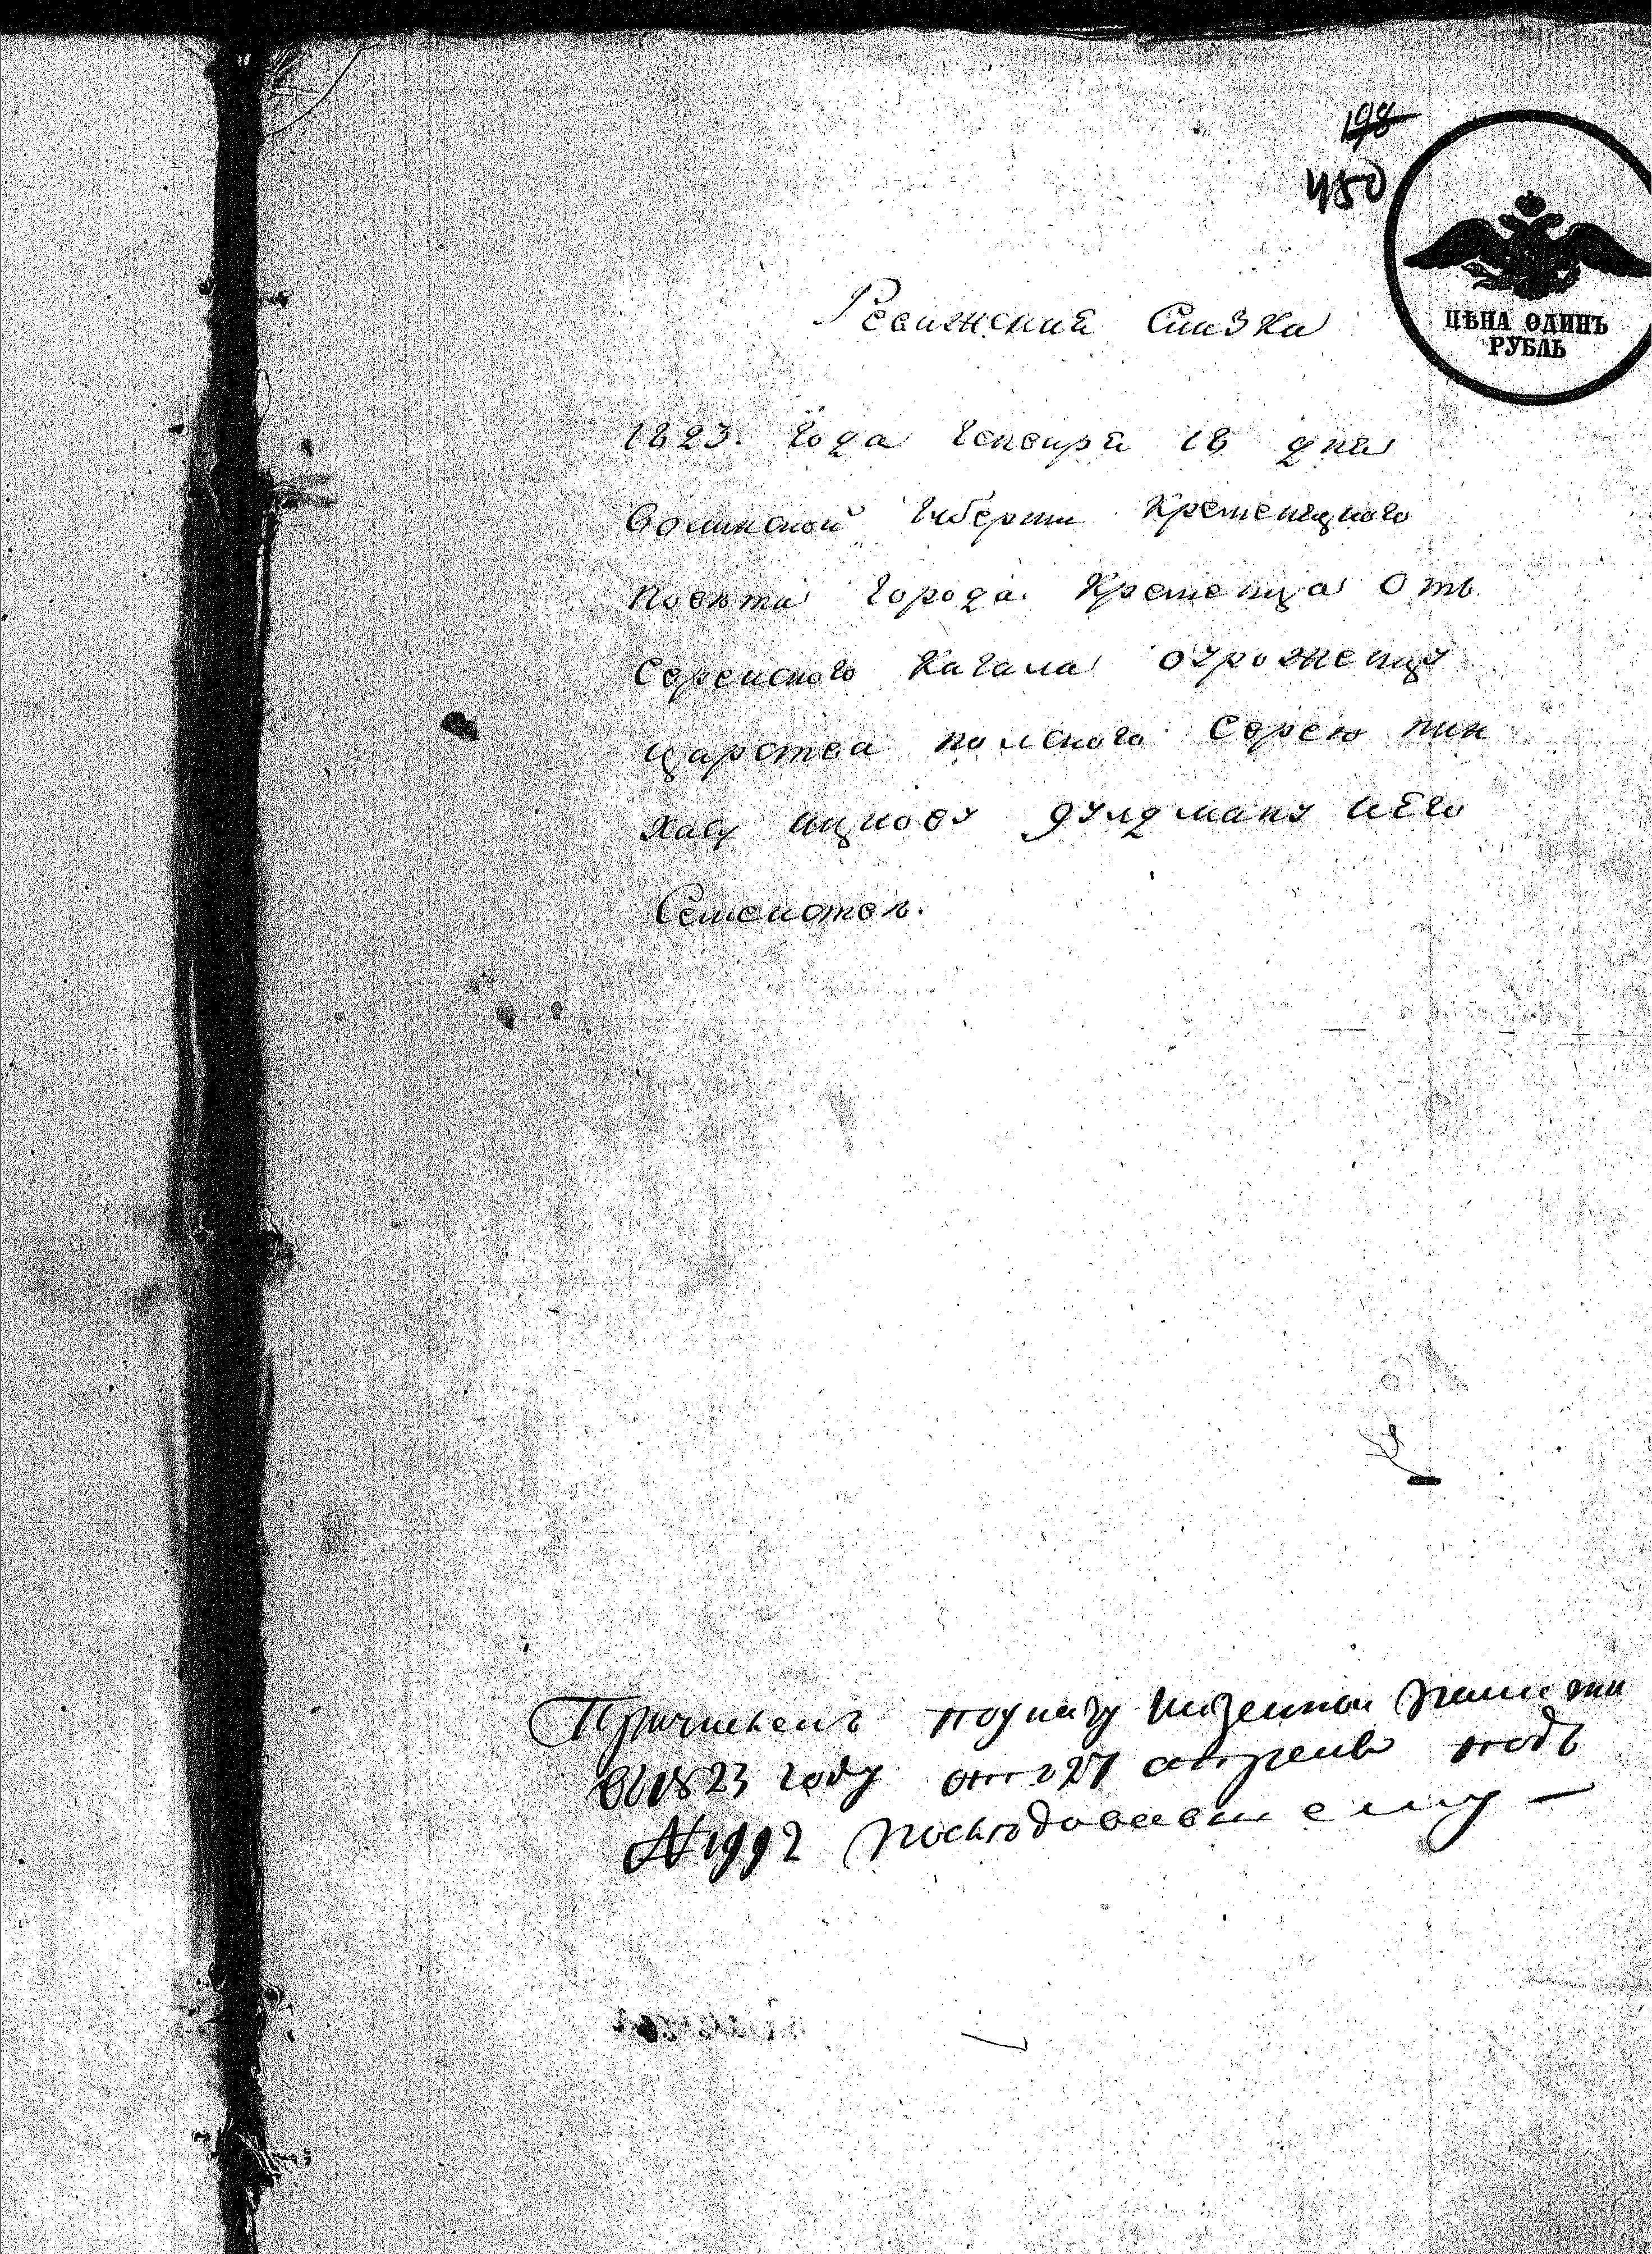 198
450
ЦѢНА ОДИНЪ
РУБЛЬ
Ревижская Сказка
1823. года Генваря 18 дня
Волинской Губерти Кременецкого
повѣта города Кременца Отъ
Еврейского Кагала
царства полского Еврею пин
хасу ицкову дулдману иЕго
Семейством.
Причисленъ поуказу Казенной Палати
въ 1823 году отъ 27 апреля подъ
№ 1992 последовавшему —